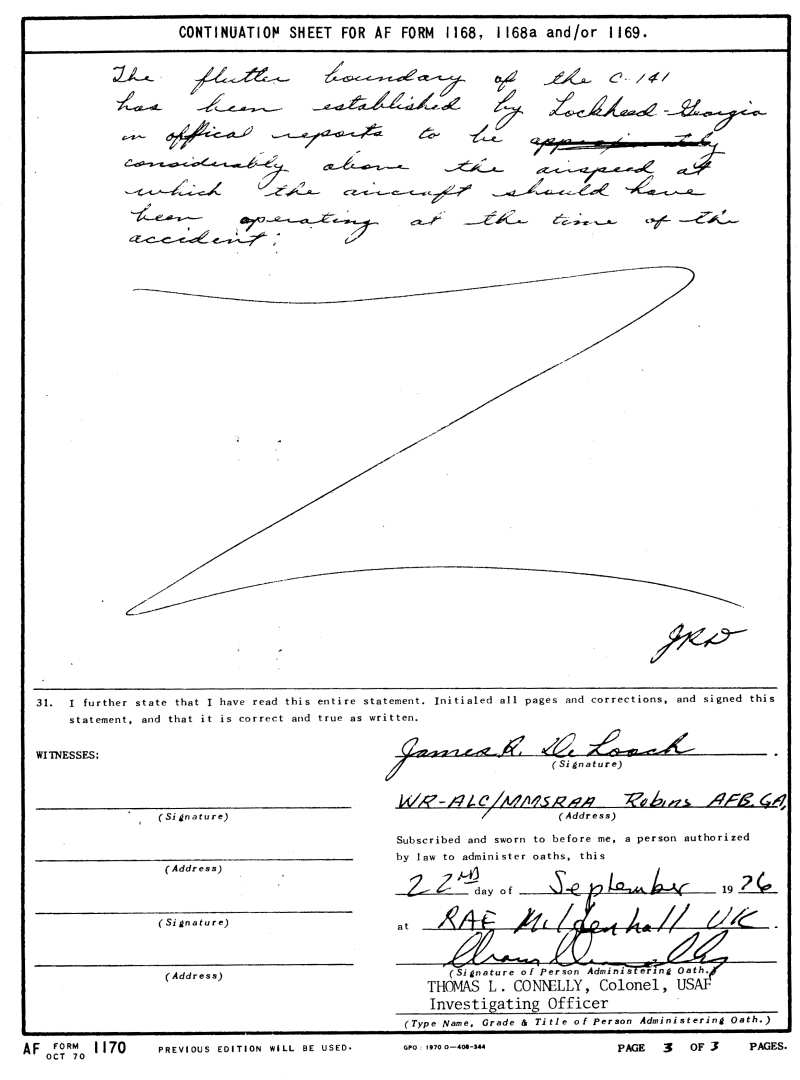 CONTINUATION SHEET FOR AF FORM 1168, 1168a and/or 1169.
The flutter boundary of the C-141
has been established by Lockheed-Georgia
in offical reports to be
considerably above the airspeed at
which the aircraft should have
been operating at the time of the
accident.
JRD
31. I further state that I have read this entire statement. Initialed all pages and corrections, and signed this
statement, and that it is correct and true as written.
WITNESSES:
James R. De Loach
(Signature)
WR-ALC/MMSRAA Robins AFB. GA,
(Signature)
(Address)
Subscribed and sworn to before me, a person authorized
by law to administer oaths, this
(Address)
22ND day of September 1976
(Signature)
at RAF Mildenhall UK.
(Address)
(Signature of Person Administering Oath.)
THOMAS L. CONNELLY, Colonel, USAF
Investigating Officer
(Type Name, Grade & Title of Person Administering Oath.)
AF FORM 1170
OCT 70
PREVIOUS EDITION WILL BE USED.
GPO : 1970 O-408-344
PAGE 3 OF 3 PAGES.